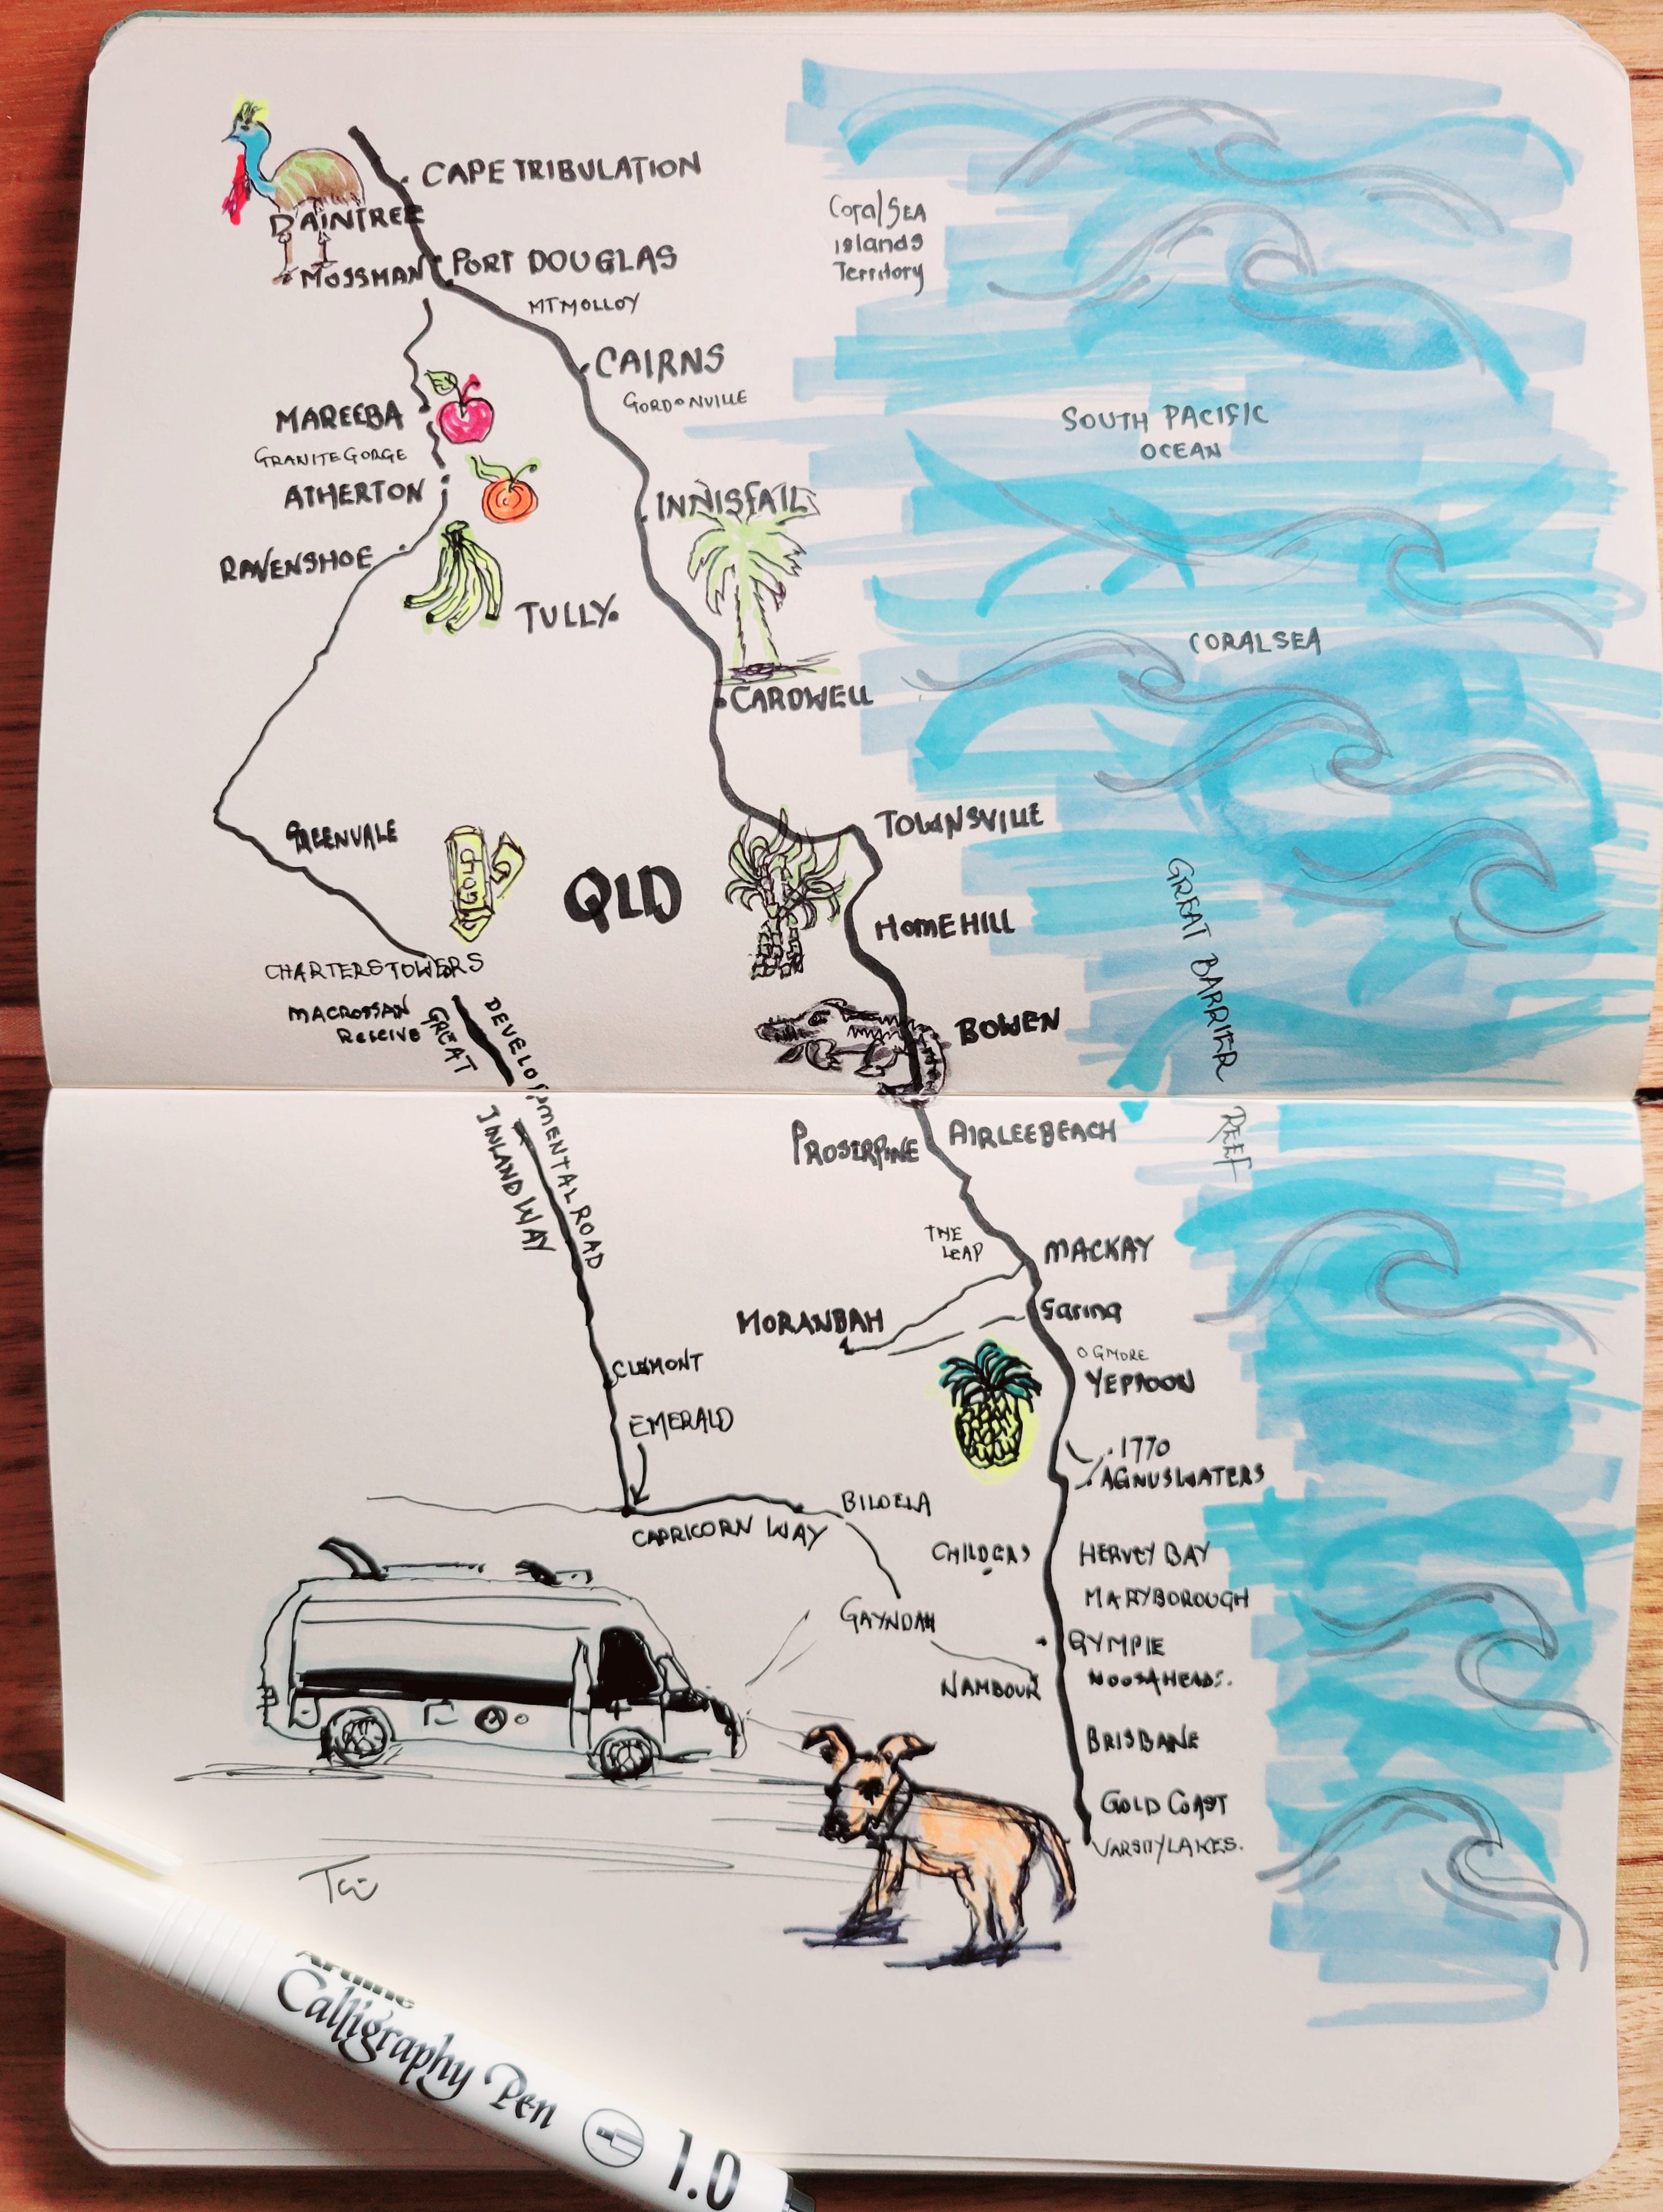 CAPE TRIBULATION
DAINTREE
MOSSMAN
PORT DOUGLAS
MTMOLLOY
Coral SEA
islands
Territory
CAIRNS
GORDONVILLE
MAREEBA
GRANITE GORGE
ATHERTON
RAVENSHOE
INNISFAIL
TULLY.
SOUTH PACIFIC
OCEAN
CORALSEA
CARDWELL
TOWNSVILLE
GREENVALE
GOLD
QLD
HOMEHILL
CHARTERSTOWERS
MACROSSAN
BOWEN
GREAT BARRIER
REEF
GREAT
INLAND WAY
DEVELOPMENTAL ROAD
PROSERPINE
AIRLEEBEACH
THE
LEAP
MACKAY
MORANBAH
Sarina
OGMORE
YEPPOON
CLEMONT
EMERALD
1770
AGNUSWATERS
BILOELA
CAPRICORN WAY
CHILDERS
HERVEY BAY
MARYBOROUGH
GAYNDAH
GYMPIE
NAMBOUR
NOOSAHEADS.
BRISBANE
GOLD COAST
VARSITYLAKES.
Artline
Calligraphy Pen 1.0